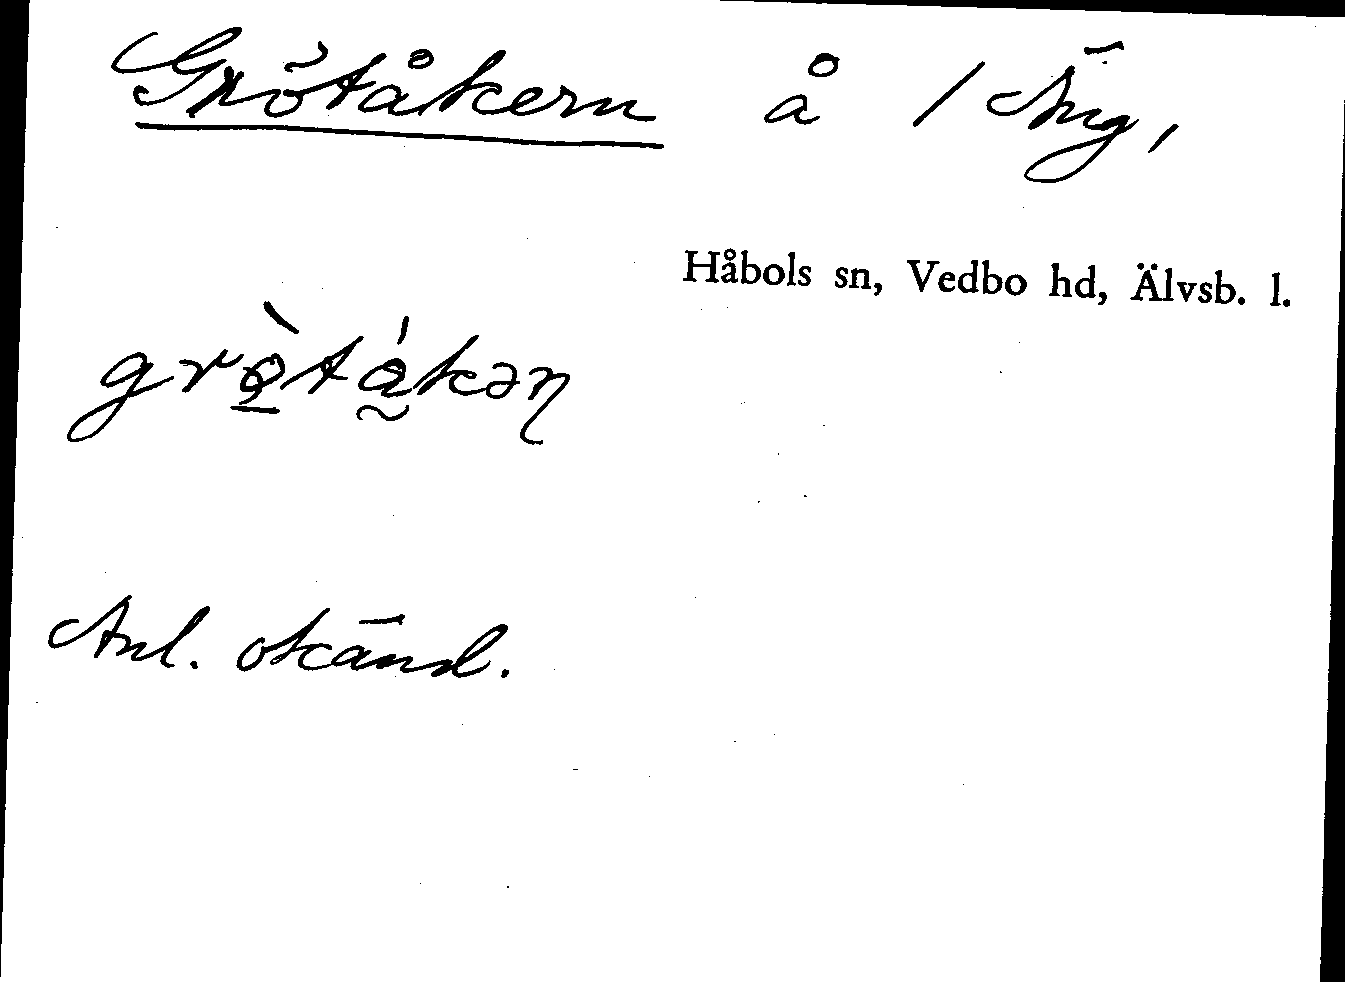 Grötåkern å 1 Äng,
Håbols sn, Vedbo hd, Älvsb. l.
grö̀tǻkəɳ
Anl. okänd.